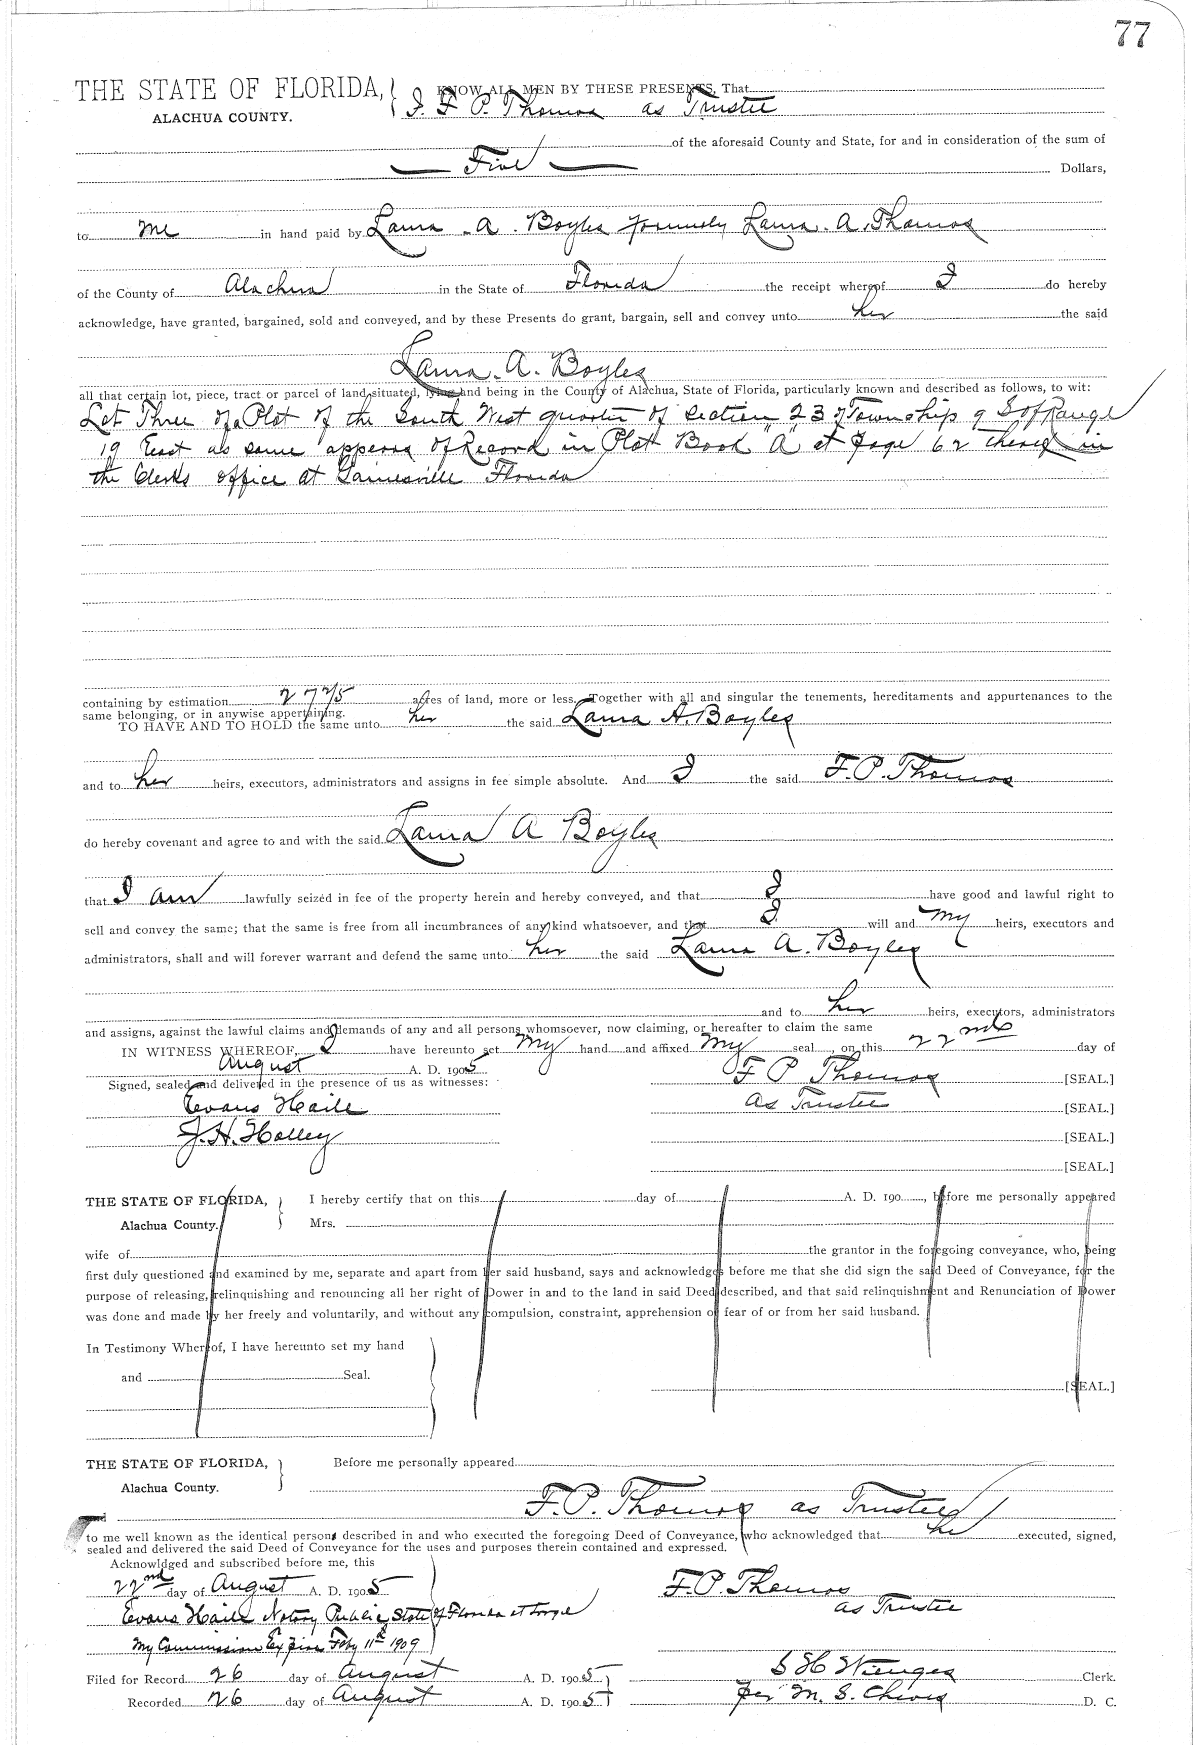 77
THE STATE OF FLORIDA, KNOW ALL MEN BY THESE PRESENTS, That
ALACHUA COUNTY. I. F P. Thomas as Trustee
of the aforesaid County and State, for and in consideration of the sum of
Five Dollars,
to me in hand paid by Laura A. Boyles formerly Laura. A. Thomas
of the County of Alachua in the State of Florida the receipt whereof I do hereby
acknowledge, have granted, bargained, sold and conveyed, and by these Presents do grant, bargain, sell and convey unto her the said
Laura. A. Boyles
all that certain lot, piece, tract or parcel of land situated, lying and being in the County of Alachua, State of Florida, particularly known and described as follows, to wit:
Lot Three of a Plot of the South West quarter of Section 23 of Township 9 S of Range
19 East as same appears of Record in Plat Book "A" at page 62 thereof in
the Clerks office at Gainesville Florida
containing by estimation 27 2/5 acres of land, more or less. Together with all and singular the tenements, hereditaments and appurtenances to the
same belonging, or in anywise appertaining.
TO HAVE AND TO HOLD the same unto her the said Laura A. Boyles
and to her heirs, executors, administrators and assigns in fee simple absolute. And I the said F. P. Thomas
do hereby covenant and agree to and with the said Laura A Boyles
that I am lawfully seized in fee of the property herein and hereby conveyed, and that I have good and lawful right to
sell and convey the same; that the same is free from all incumbrances of any kind whatsoever, and that I will and my heirs, executors and
administrators, shall and will forever warrant and defend the same unto her the said Laura A. Boyles
and to her heirs, executors, administrators
and assigns, against the lawful claims and demands of any and all persons whomsoever, now claiming, or hereafter to claim the same
IN WITNESS WHEREOF, I have hereunto set my hand and affixed my seal, on this 22nd day of
August A. D. 1905
Signed, sealed and delivered in the presence of us as witnesses: F P Thomas [SEAL.]
Evans Haile as Trustee [SEAL.]
J. H. Holley [SEAL.]
[SEAL.]
THE STATE OF FLORIDA, I hereby certify that on this day of A. D. 190 , before me personally appeared
Alachua County. Mrs.
wife of the grantor in the foregoing conveyance, who, being
first duly questioned and examined by me, separate and apart from her said husband, says and acknowledges before me that she did sign the said Deed of Conveyance, for the
purpose of releasing, relinquishing and renouncing all her right of Dower in and to the land in said Deed described, and that said relinquishment and Renunciation of Dower
was done and made by her freely and voluntarily, and without any compulsion, constraint, apprehension or fear of or from her said husband.
In Testimony Whereof, I have hereunto set my hand
and Seal. [SEAL.]
THE STATE OF FLORIDA, Before me personally appeared
Alachua County.
F. P. Thomas as Trustee
to me well known as the identical person described in and who executed the foregoing Deed of Conveyance, who acknowledged that he executed, signed,
sealed and delivered the said Deed of Conveyance for the uses and purposes therein contained and expressed.
Acknowldged and subscribed before me, this
22nd day of August A. D. 1905 F. P. Thomas
Evans Haile Notary Public State of Florida at large as Trustee
My Commission Expires Feby 11th 1909
Filed for Record 26 day of August A. D. 1905 S H Wienges Clerk.
Recorded 26 day of August A. D. 1905 per M. S. Cheves D. C.